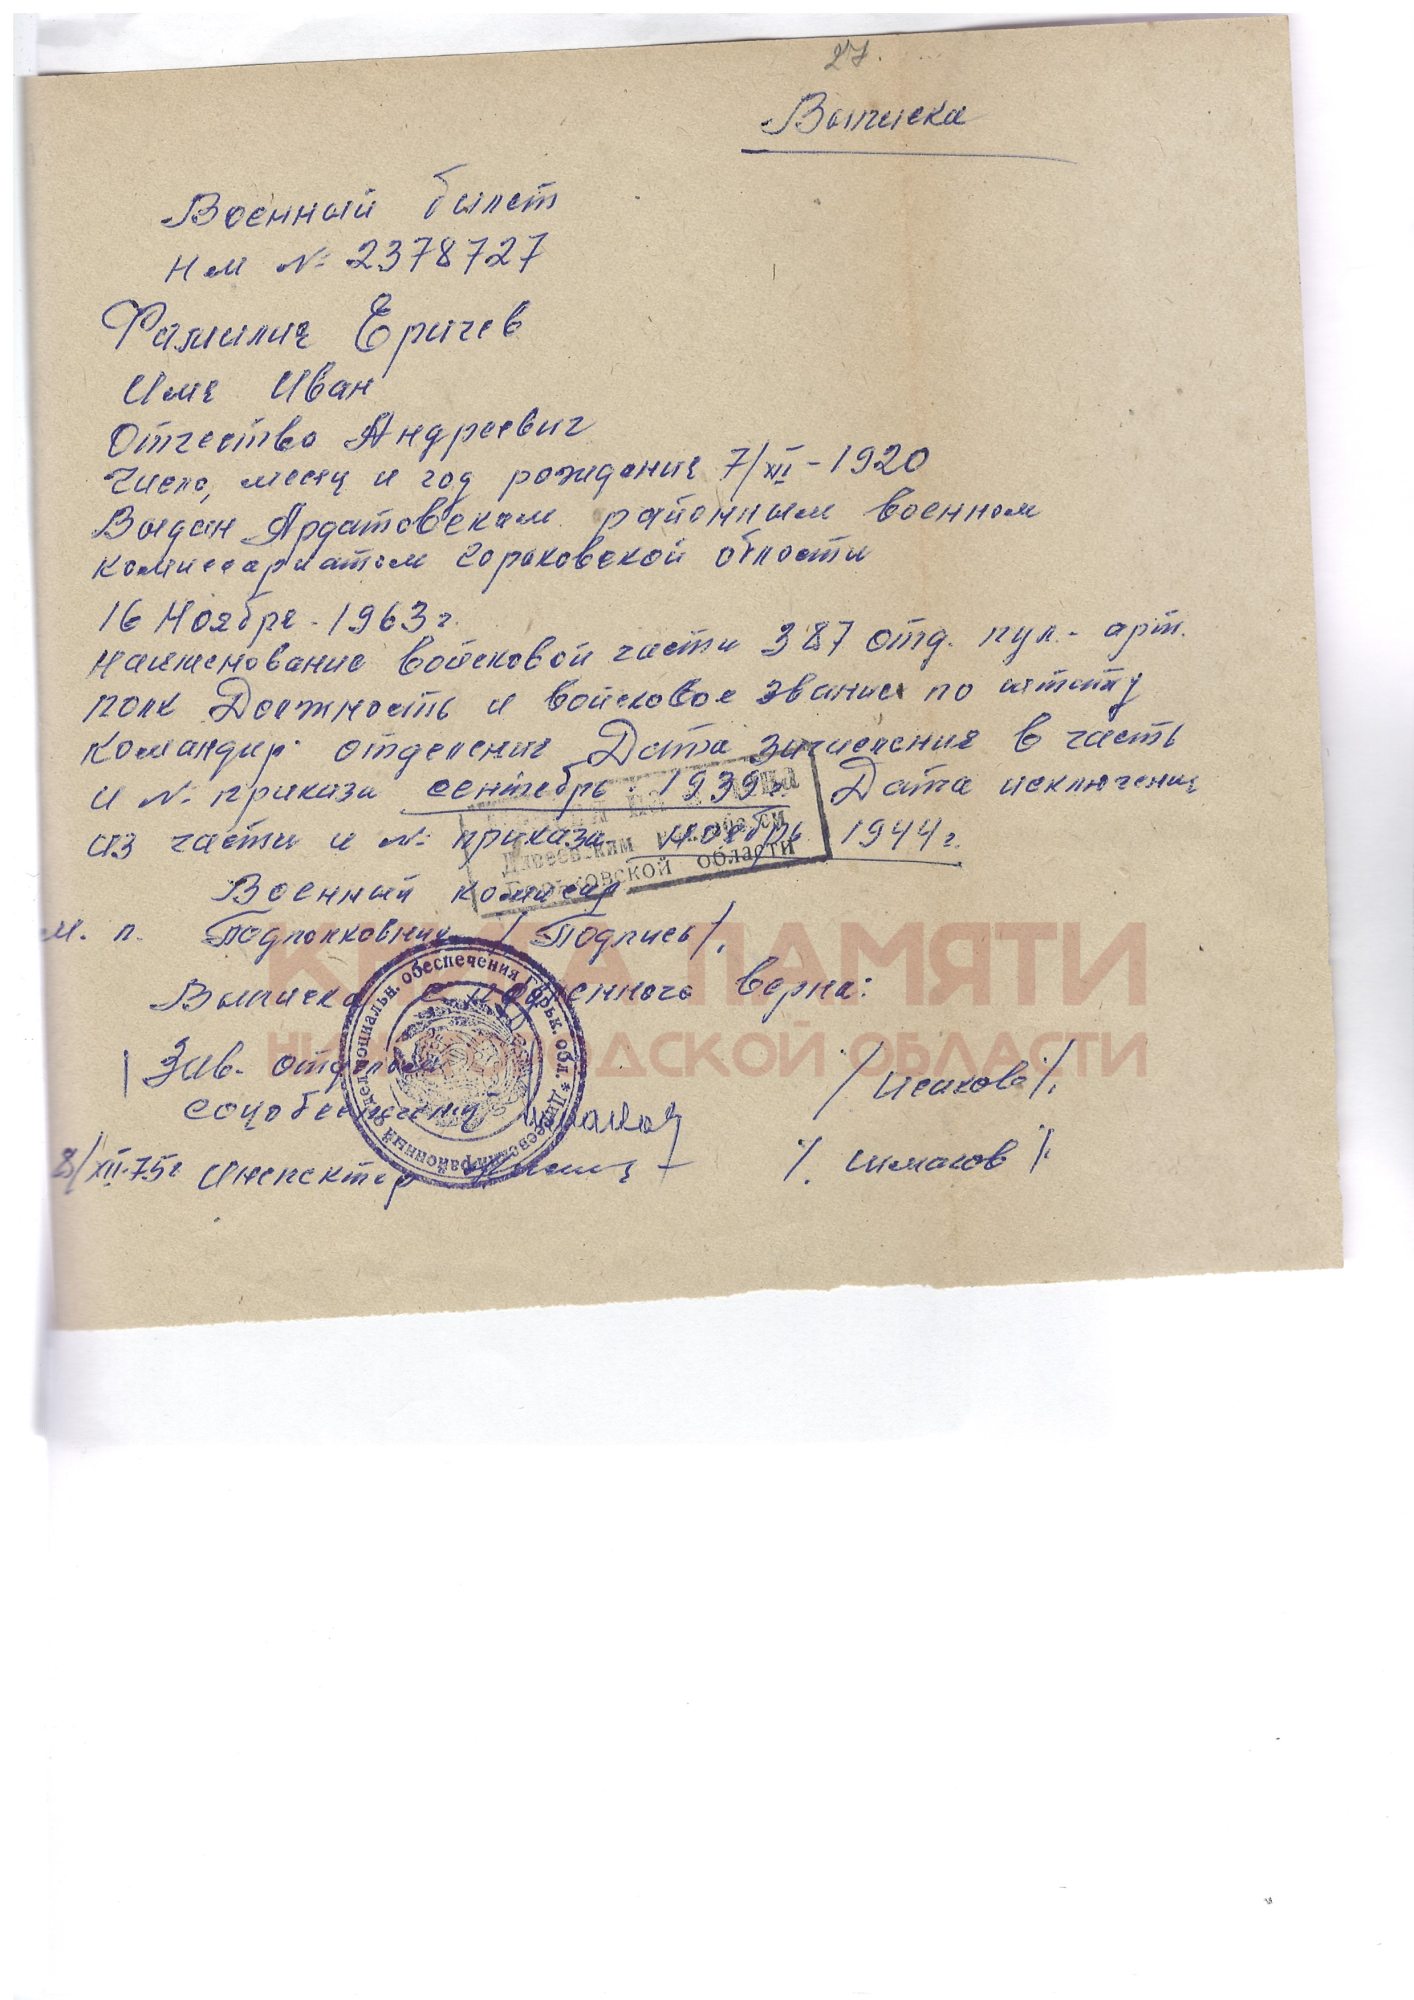 27.
Выписка
Военный билет
НМ № 2378727
Фамилия Еричев
Имя Иван
Отчество Андреевич
Число, месяц и год рождения 7/XII-1920
Выдан Ардатовским районным военном
комиссариатом Горьковской области
16 Ноября - 1963 г.
Наименование войсковой части 387 отд. пул.- арт.
полк Должность и войсковое звание по штату
командир отделения Дата зачисления в часть
и № приказа сентябрь 1939 г. Дата исключения
из части и № приказа ноябрь 1944 г.
Дивеевским
Горьковской области
Военный комиссар
М. п. Подполковник / Подпись /.
Выписка с подленного верна:
КНИГА ПАМЯТИ
НИЖЕГОРОДСКОЙ ОБЛАСТИ
Зав. отделом / Исакова /.
соцобеспечения
8/XII-75г Инспектор /. Шмаков /.
Дивеевский районный отдел социальн. обеспечения Горьк. обл. *